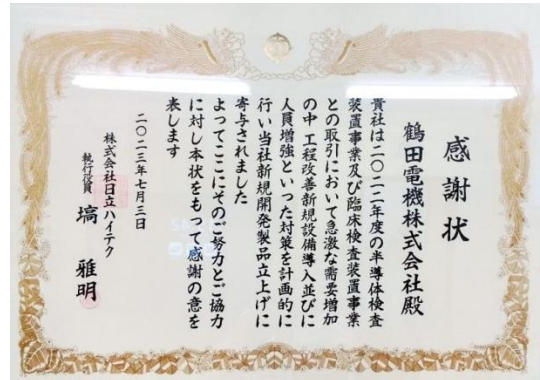 感謝状
鶴田電機株式会社殿
貴社は二〇二二年度の半導体検査
装置事業及び臨床検査装置事業
との取引において急激な需要増加
の中 工程改善新規設備導入並びに
人員増強といった対策を計画的に
行い当社新規開発製品立上げに
寄与されました
よってここにそのご努力とご協力
に対し本状をもって感謝の意を
表します
二〇二三年七月三日
株式会社日立ハイテク
執行役員 塙 雅明